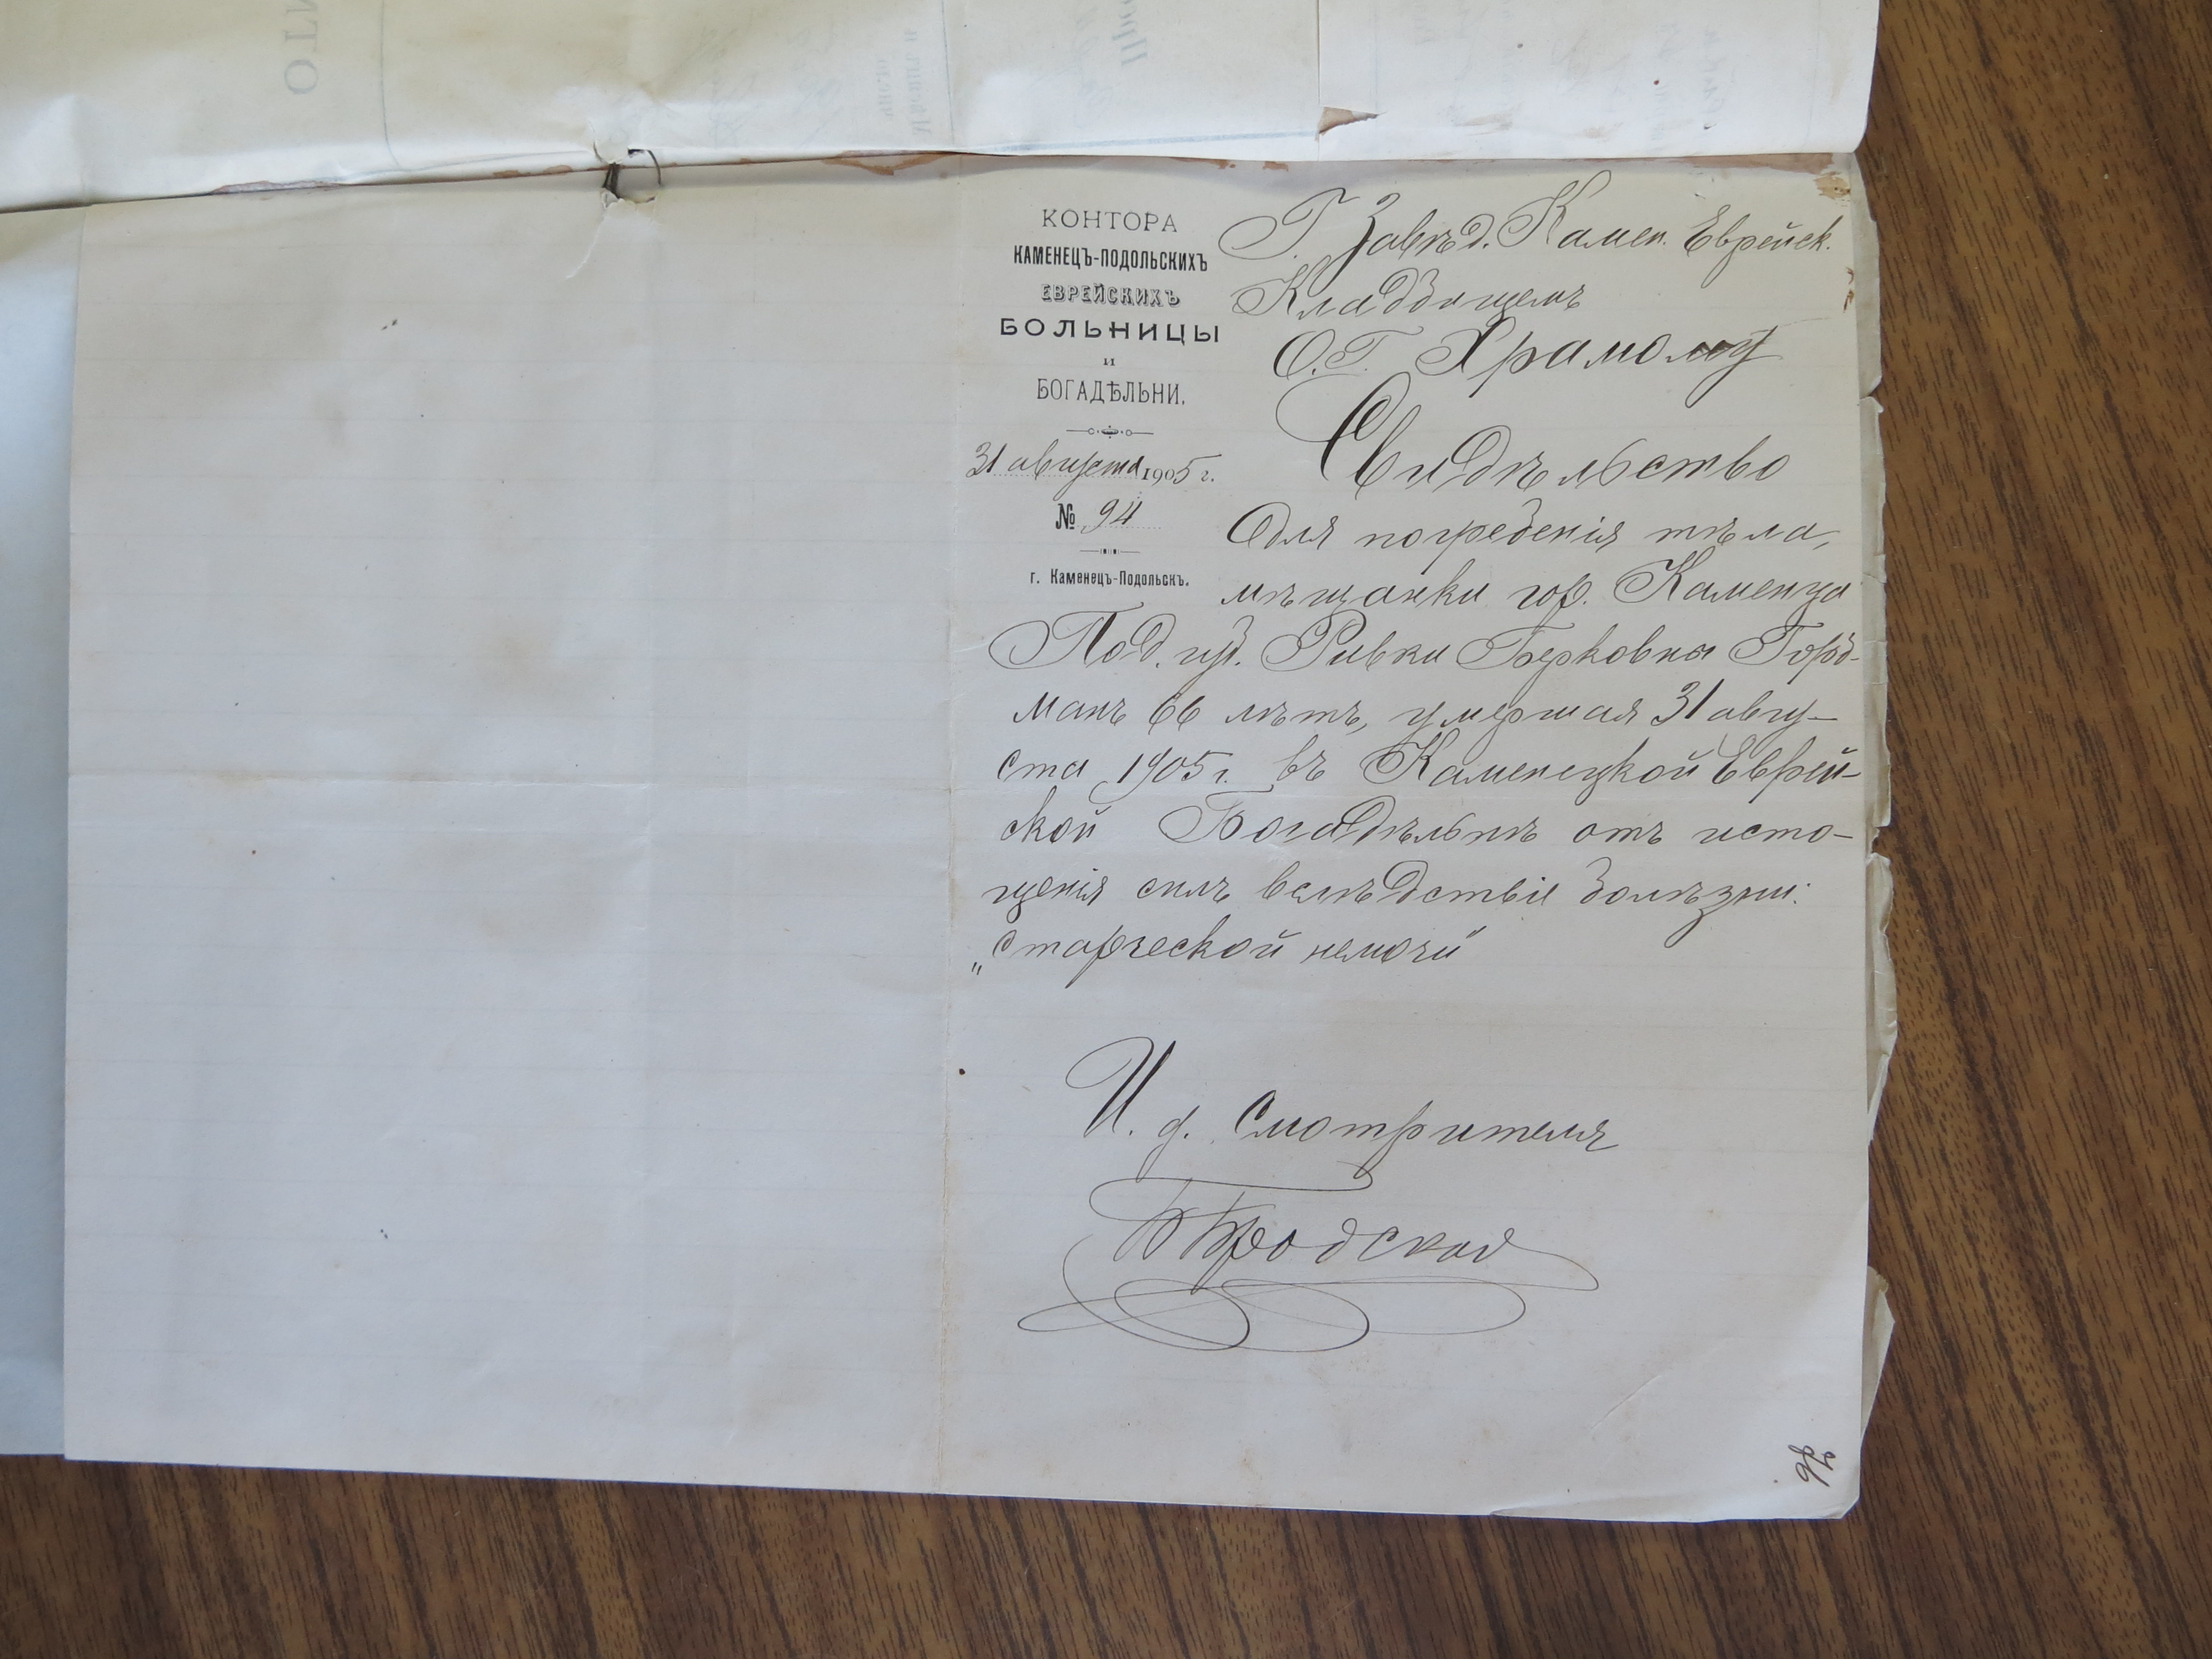 КОНТОРА
КАМЕНЕЦЪ-ПОДОЛЬСКИХЪ
ЕВРЕЙСКИХЪ
БОЛЬНИЦЫ
и
БОГАДѢЛЬНИ.
31 августа 1905 г.
№ 94
г. Каменецъ-Подольскъ.
Г. Завѣд. Камен. Еврейск.
Кладбищемъ
О.Г. Храмому
Свидѣльство
для погребенія тѣла,
мѣщанки гор. Каменца
Под. губ. Ривки Берковна
манъ 66 лѣтъ, умершая 31 авгу-
ста 1905 г. въ Каменецкой Еврей-
ской Богадѣльнѣ отъ исто-
щенія силъ вслѣдствіе болѣзни:
„старческой немочи"
И. д. Смотрителя
Б Бродская